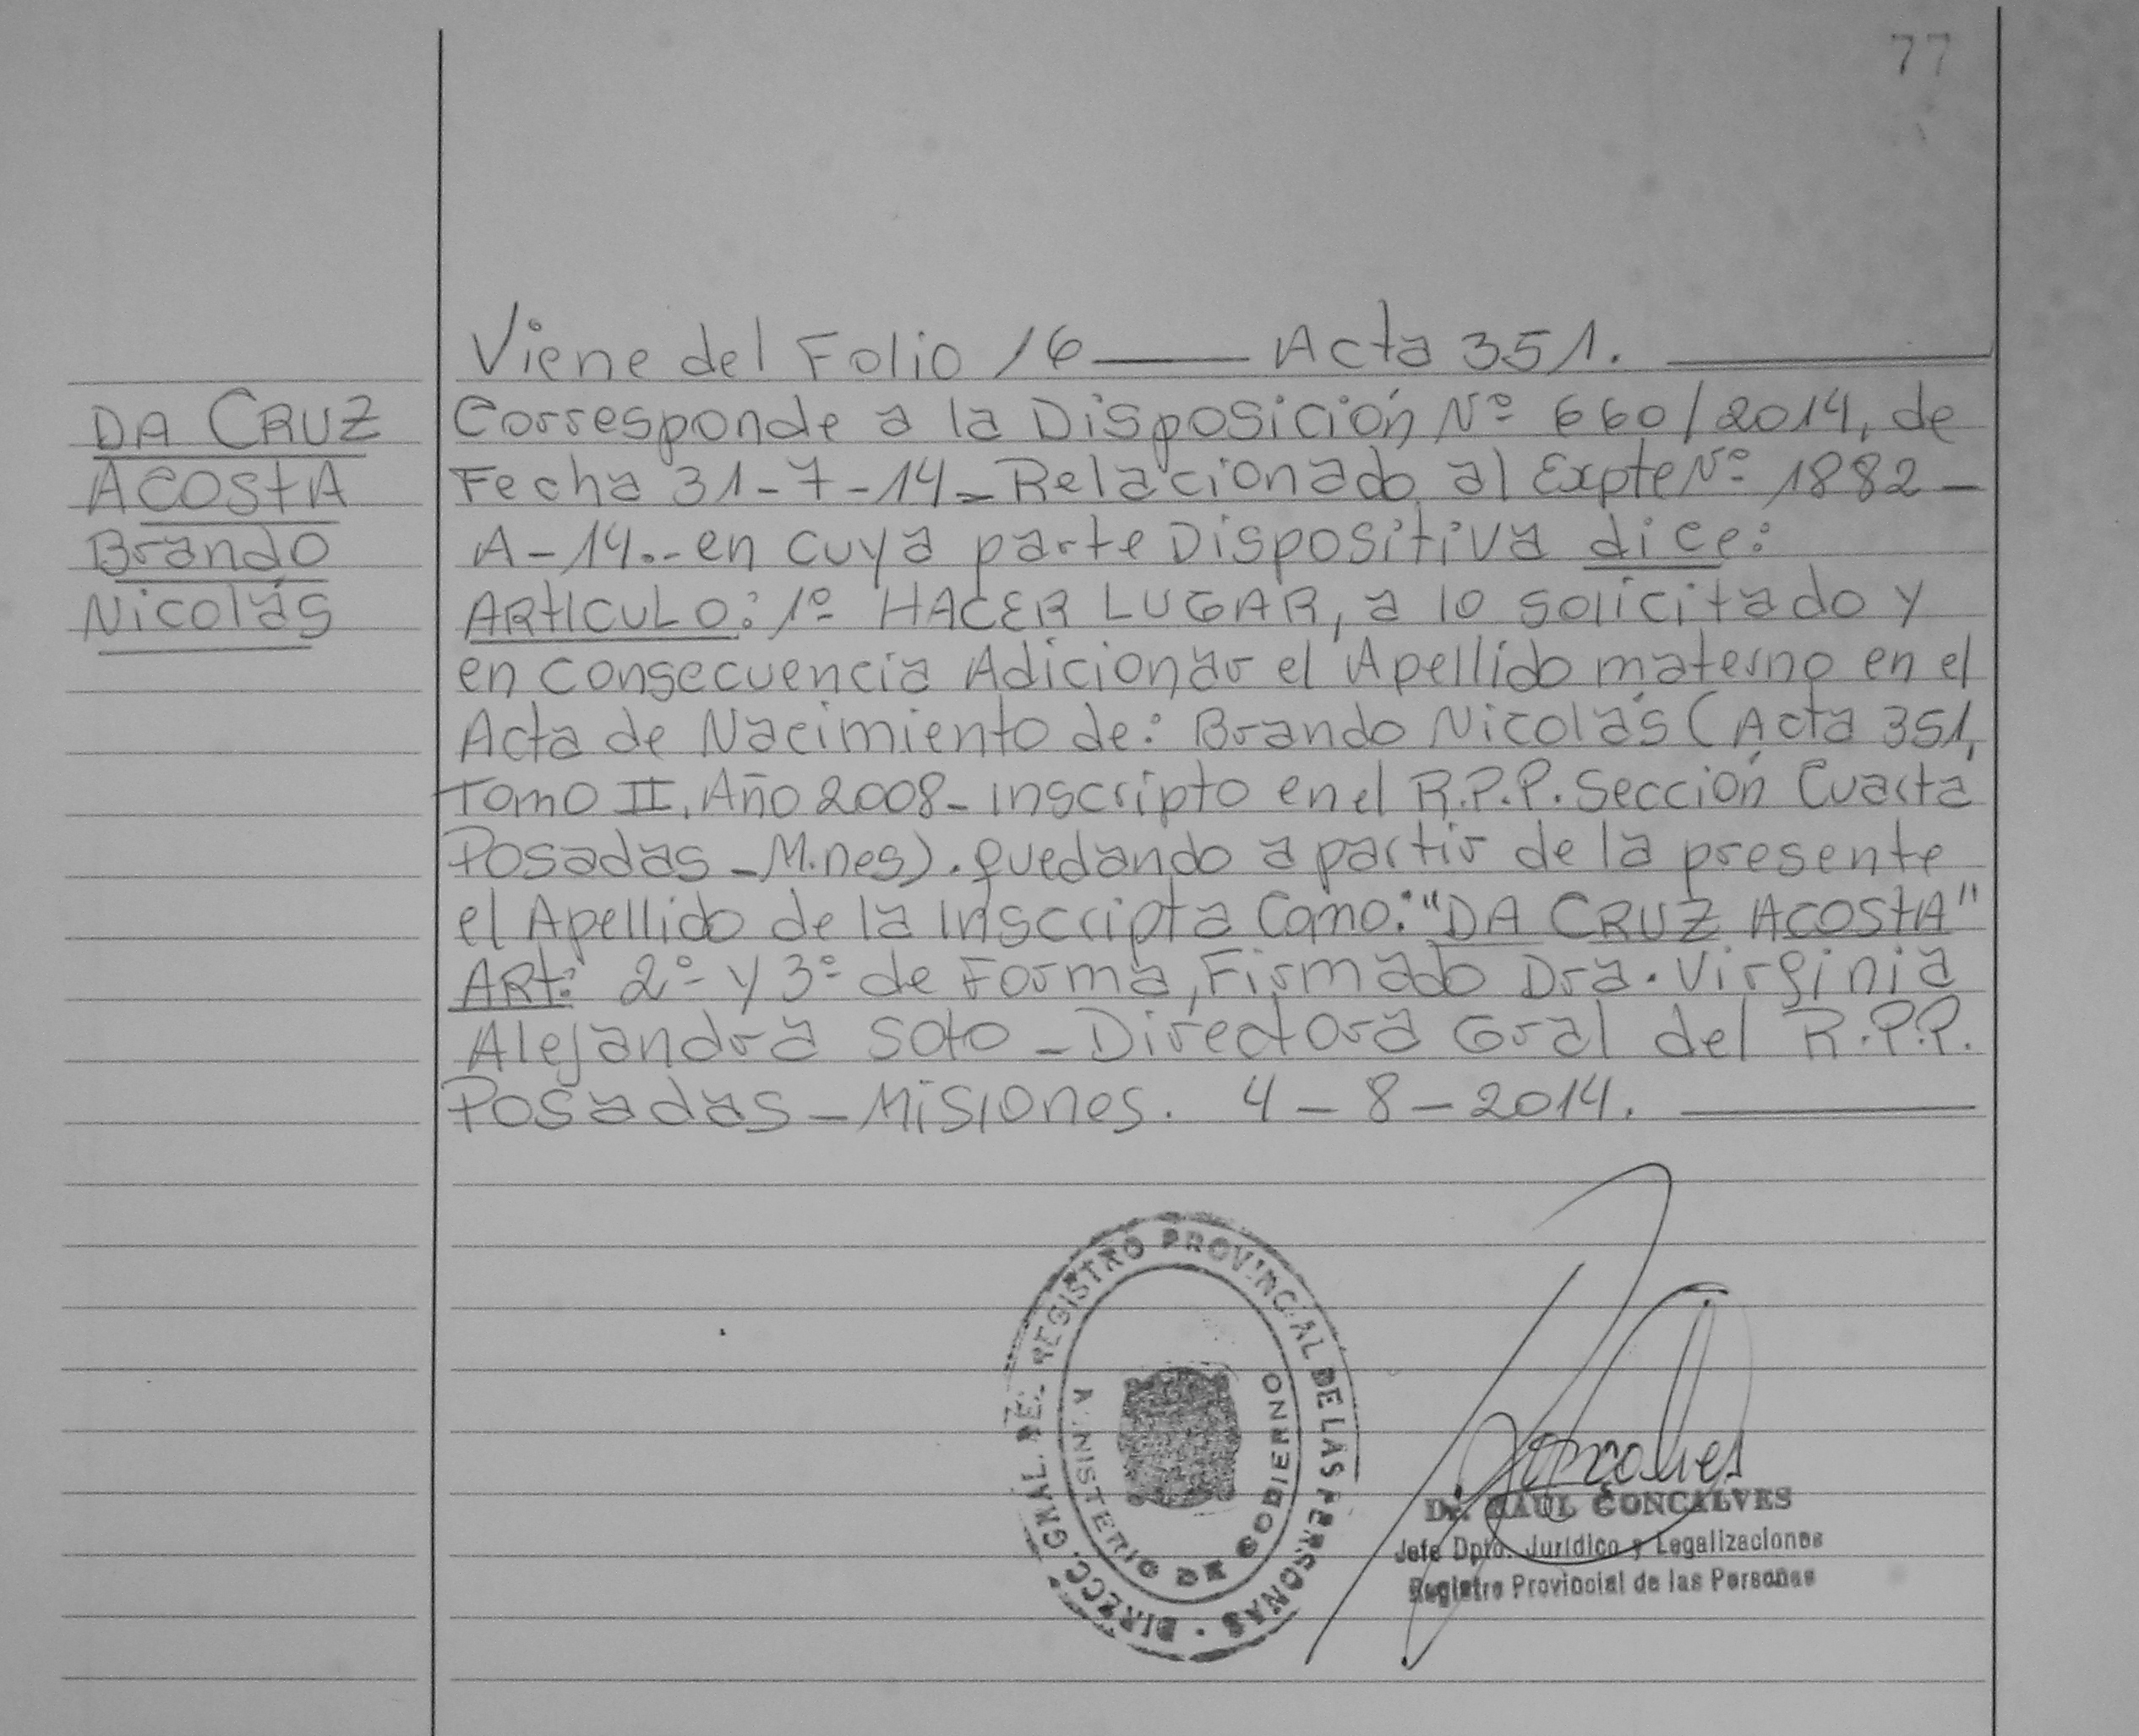 77
Viene del Folio 16 —— Acta 351. ——
DA CRUZ
ACOSTA
Brando
Nicolás
Corresponde a la Disposición Nº 660/2014, de
Fecha 31-7-14_ Relacionado al Expte Nº 1882-
A-14.- en cuya parte Dispositiva dice:
ARTICULO: 1º HACER LUGAR, a lo solicitado y
en consecuencia Adicionar el Apellido materno en el
Acta de Nacimiento de: Brando Nicolás (Acta 351,
Tomo II, Año 2008_ inscripto en el R.P.P. Sección Cuarta
Posadas - M.nes). quedando a partir de la presente
el Apellido de la Inscripta Como: "DA CRUZ ACOSTA"
ART: 2º y 3º de Forma, Firmado Dra. Virginia
Alejandra Soto - Directora Gral del R.P.P.
Posadas - Misiones. 4-8-2014. ——
DIRECC. GRAL. DEL REGISTRO PROVINCIAL DE LAS PERSONAS
MINISTERIO DE GOBIERNO
Goncalves
Dr. RAUL GONCALVES
Jefe Dpto. Jurídico y Legalizaciones
Registro Provincial de las Personas